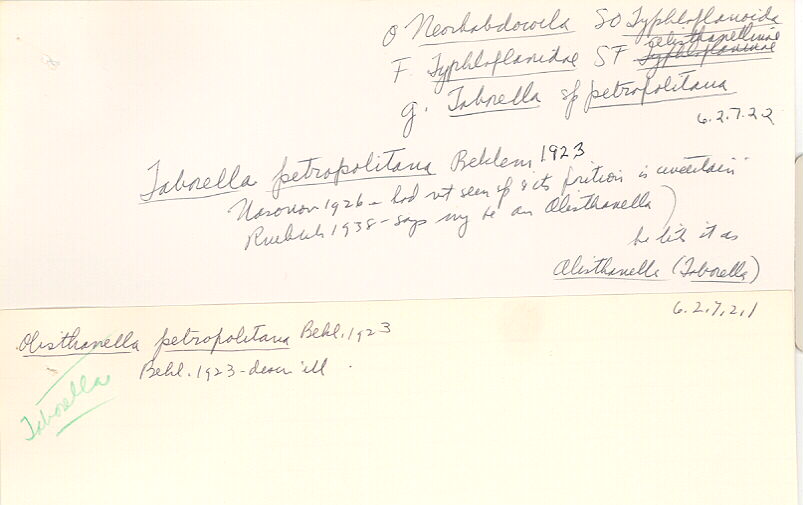 O Neorhabdocoela SO Typhloplanoida
F. Typhloplanidae SF Olisthanellinae
g. Taborella sp petropolitana
6.2.7.22
Taborella petropolitana Beklem 1923
Nasonov 1926 - had not seen sp & its position is uncertain
Ruebush 1938 - says may be an Olisthanella)
he lists it as
Olisthanella (Taborella)
6.2.7.2.1
Olisthanella petropolitana Bekl. 1923
Bekl. 1923 - descr ill.
Taborella